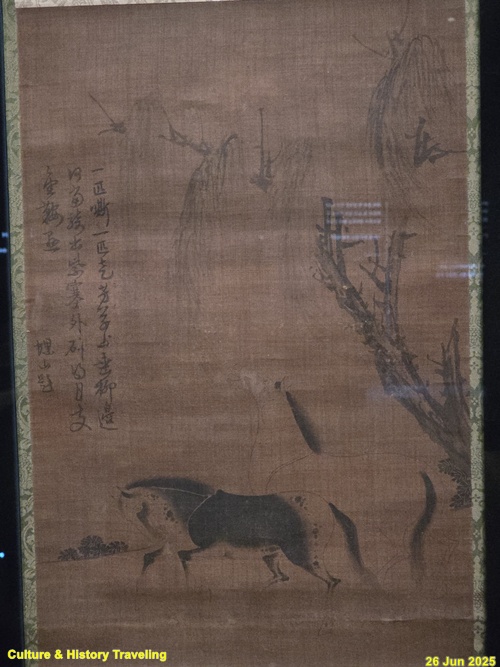 一匹嘶一匹走芳草垂柳邊
出紫塞外得月支
金鞍
螺山題
Culture & History Traveling
26 Jun 2025